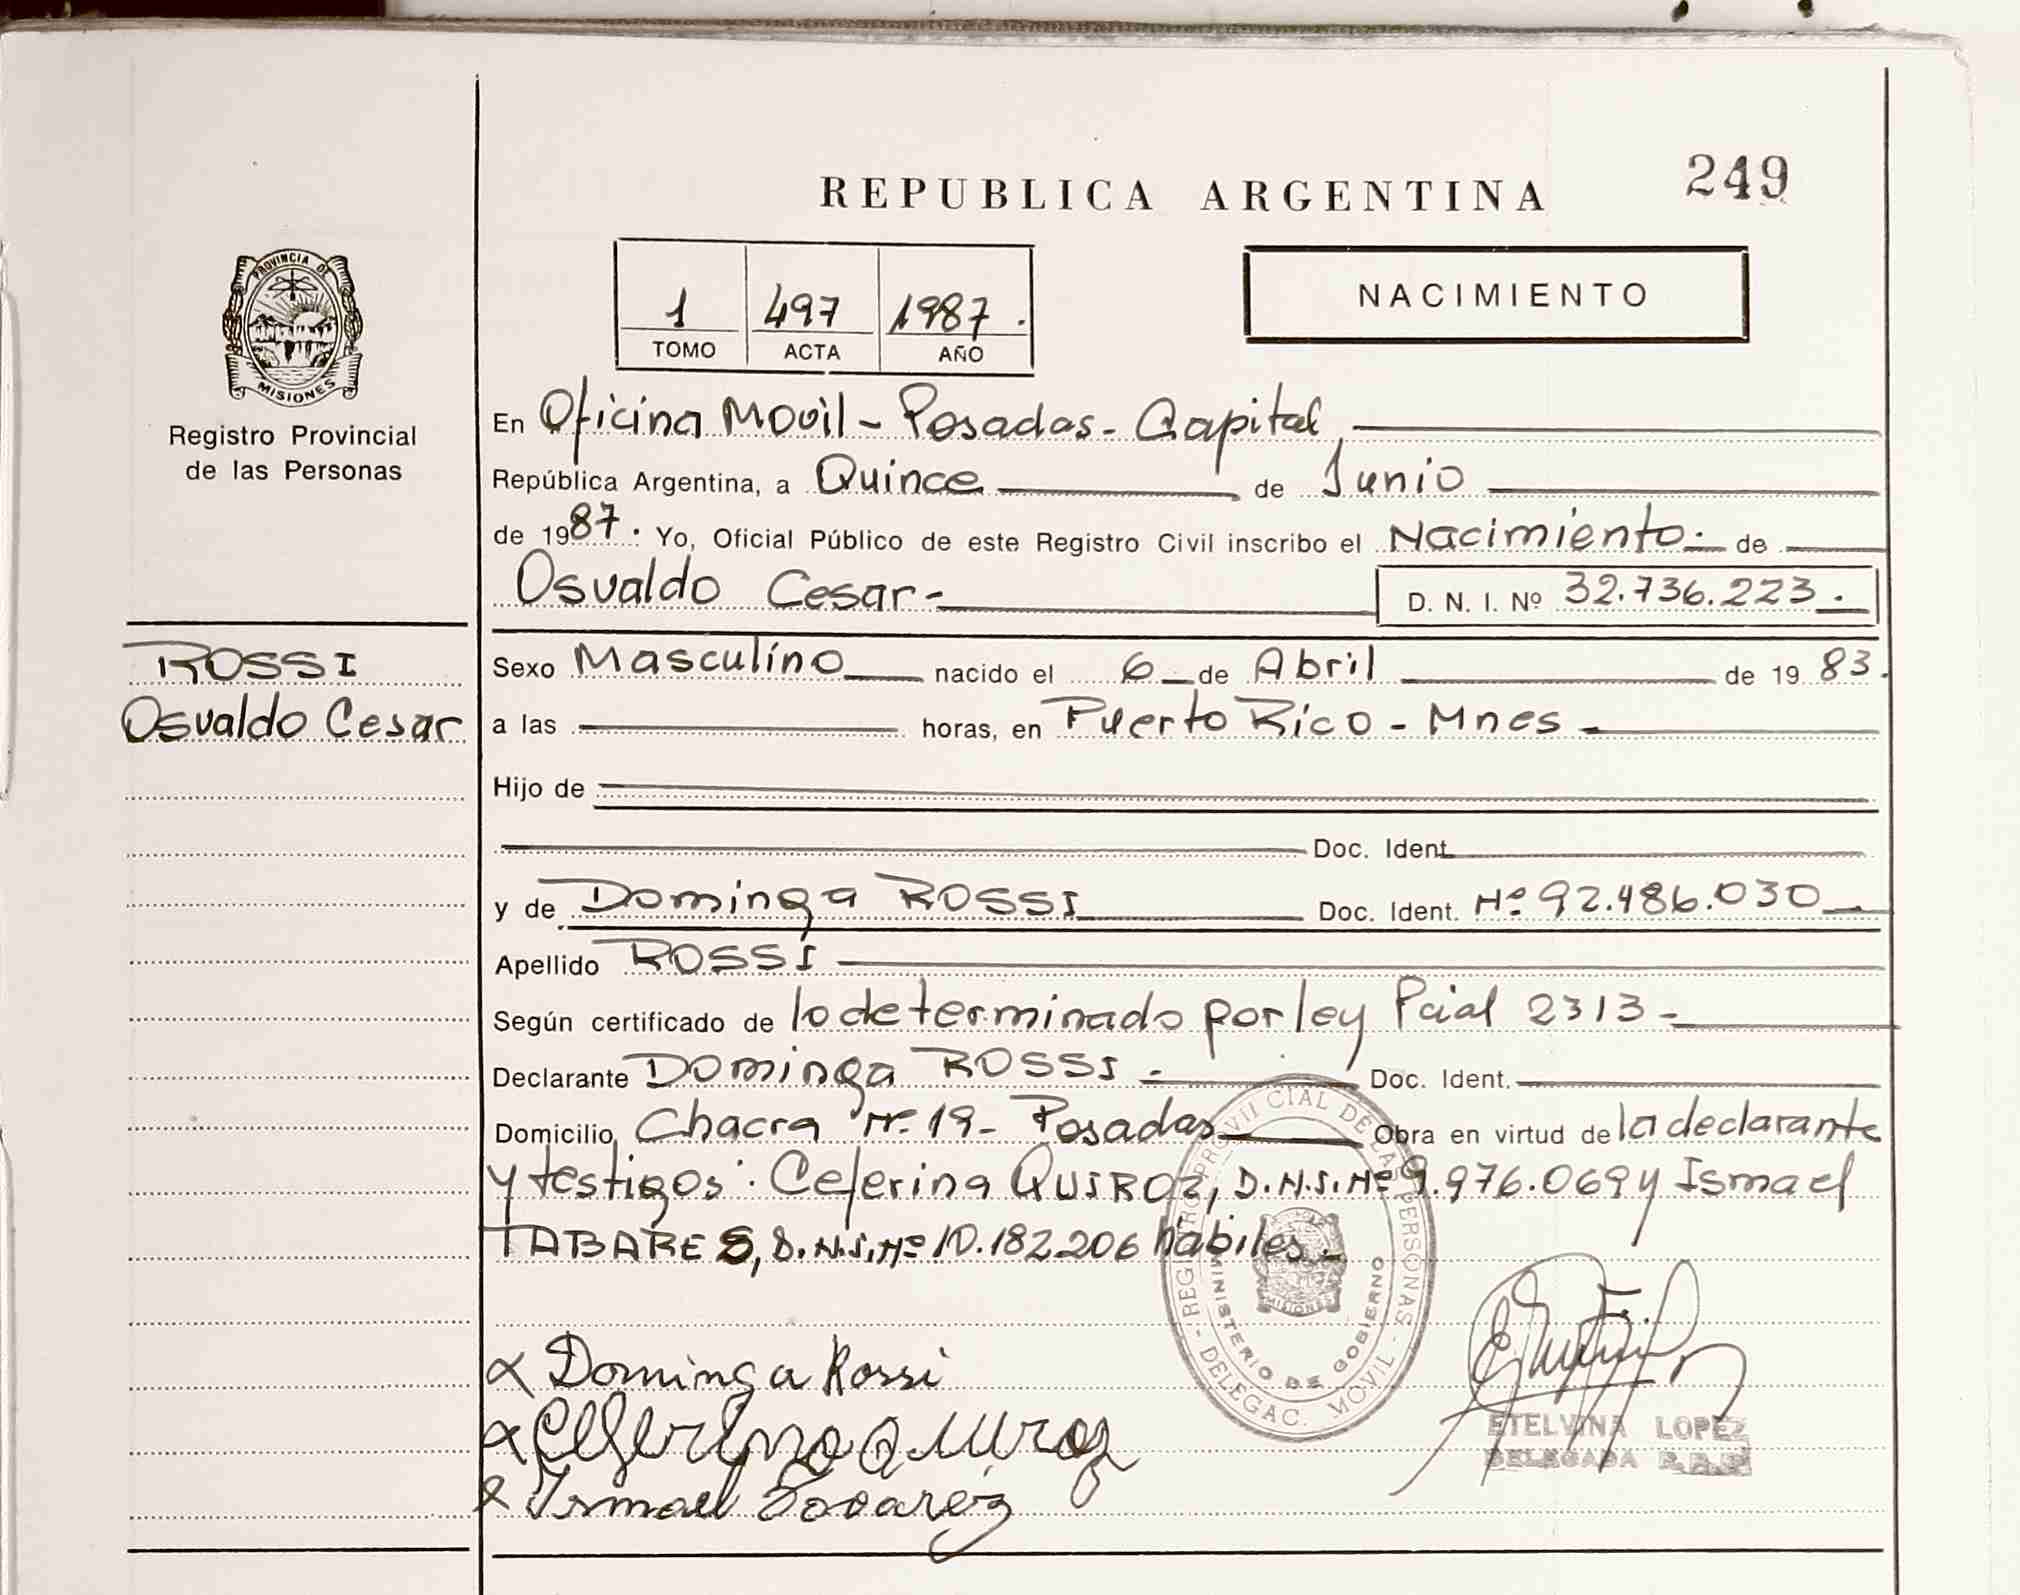 249
REPUBLICA ARGENTINA
PROVINCIA DE
MISIONES
Registro Provincial
de las Personas
1 497 1987.
TOMO ACTA AÑO
NACIMIENTO
En Oficina Movil - Posadas - Capital
República Argentina, a Quince de Junio
de 1987. Yo, Oficial Público de este Registro Civil inscribo el Nacimiento.- de
Osvaldo Cesar.- D. N. I. Nº 32.736.223.
ROSSI
Osvaldo Cesar
Sexo Masculino nacido el 6 de Abril de 1983.
a las horas, en Puerto Rico - Mnes -
Hijo de
Doc. Ident.
y de Dominga ROSSI Doc. Ident. Nº 92.486.030
Apellido ROSSI
Según certificado de lo determinado por ley Pcial 2313 -
Declarante Dominga ROSSI - Doc. Ident.
Domicilio Chacra Nº 19 - Posadas Obra en virtud de la declarante
y testigos: Ceferina QUIROZ, D.N.I. Nº 9.976.069 y Ismael
TABARES, D.N.I. Nº 10.182.206 hábiles.-
Dominga Rossi
Ceferina Quiroz
Ismael Tavarez
MISIONES
MINISTERIO DE GOBIERNO
DELEGAC. MOVIL
ETELVINA LOPEZ
DELEGADA